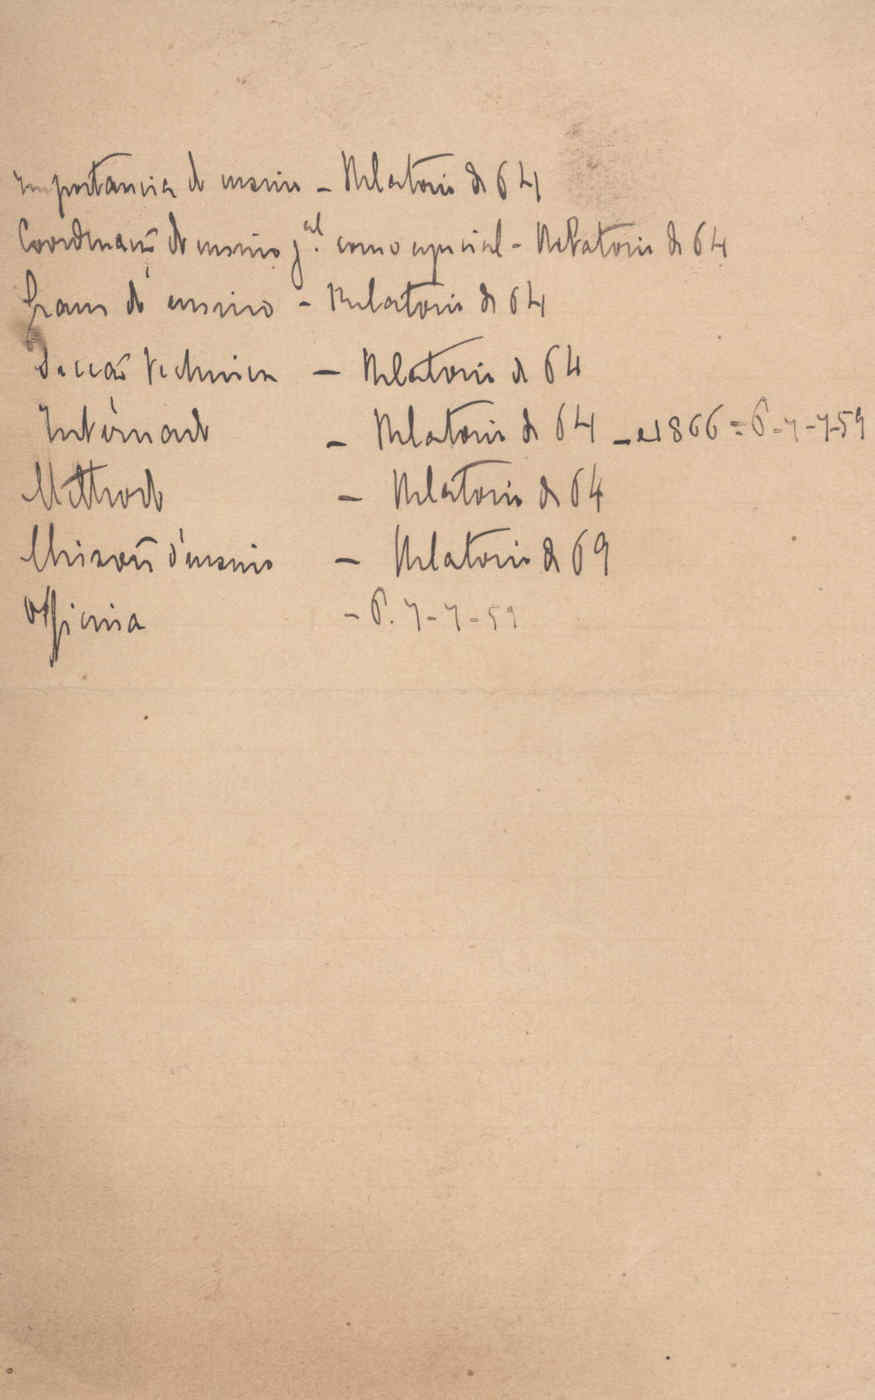 Importancia do ensino - Relatorio de 64
Coordenação do ensino g.al como especial - Relatorio de 64
Graus de ensino - Relatorio de 64
Secção technica - Relatorio de 64
Internado - Relatorio de 64 - e 1866 = 6-7-7-59
Methodo - Relatorio de 64
Missão d'ensino - Relatorio de 69
Officina - 6.7-7-59